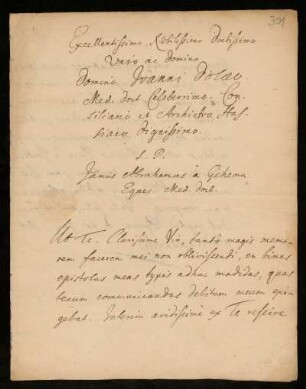 301
Excellentissimo, Nobilissimo Doctissimo
Viro ac Domino
Domino Joanni Dolaeo
Med. Doct. Celeberrimo Con-
siliario et Archiatro Has-
siaco dignissimo.
S. D.
Janus Abrahamus à Gehema
Eques Med. Doct.
Ut Te, Clarissime Vir, tantò magis memo-
rem facerem mei non obliviscendi, en binas
epistolas meas typis adhuc madidas, quas
tecum communicandas debitum meum exi-
gebat. Interim avidissime ex Te rescire